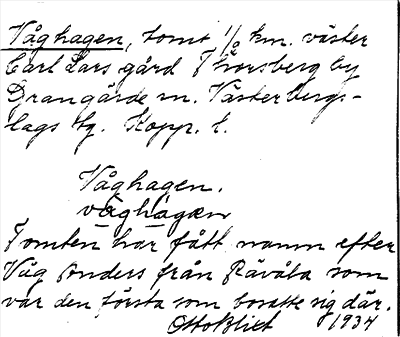 Våghagen, tomt 1/2 km. väster
Carl Lars gård Thorsberg by
Grangärde sn. Västerbergs-
lags tg. Kopp. l.
Våghagen.
våghágæn
Tomten har fått namn efter
Våg Anders från Rävåla som
var den första som bosatte sig där.
Otto Blixt 1934